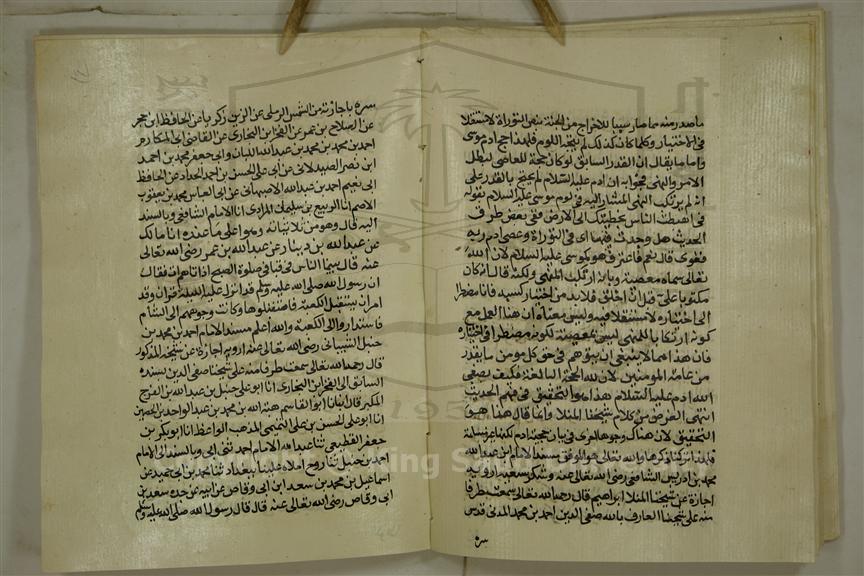 ما صدر منه مما صار سببا للاخراج من الجنة بنص التوراة لا مستقلا
في الاختيار وكلما كان كذلك لم يتجه اللوم فلهذا حج ادم موسى
واما ما يقال ان القدر السابق لو كان حجة للعاصي لبطل
الامر والنهي فجوابه ان ادم عليه السلام لم يحتج بالقدر على
انه لم يرتكب النهي المشار اليه في لوم موسى عليه السلام بقوله
اهبطت الناس بخطيئتك الى الارض ففي بعض طرف
الحديث هل وجدت فيها اى في التوراة وعصى ادم ربه
فغوى قال نعم فاعترف هو كموسى عليه السلام لان الله
تعالى سماه معصية وبانه ارتكب المنهي ولكنه قال انه كان
مكتوبا علي قبل ان اخلق فلا بد من اختيار كسبه فانا مضطر
الى اختياره لا مستقل فيه وليس معناه ان هذا الفعل مع
كونه ارتكابا للمنهي ليس بمعصية لكونه مضطرا في اختياره
فان هذا مما لا ينبغي ان يتوهم في حق كل مومن ما يقدر
من عامة المومنين لان لله الحجة البالغة فكيف بصفي
الله ادم عليه السلام هذا هو التحقيق في فهم الحديث
انتهى الغرض من كلام شيخنا المنلا وانما قال هذا هو
التحقيق لان هناك وجوها اخرى في بيان حجية ادم لكنها غير سالمة
والله تعالى هو الموفق مسند الامام ابي عبد الله
محمد بن ادريس الشافعي رضي الله تعالى عنه وشكر سعيه ارويه
اجازة عن شيخنا المنلا ابراهيم قال رحمه الله تعالى سمعت طرفا
منه على شيخنا العارف بالله صفي الدين احمد بن محمد المدني قدس
سره
سره باجازته من الشمس الرملي عن الزين زكريا عن الحافظ ابن حجر
عن الصلاح بن عمر عن الفخر ابن البخاري عن القاضي ابي المكارم
احمد بن محمد بن محمد بن عبد الله اللبان وابي جعفر محمد بن احمد
ابن نصر الصيدلاني عن ابي علي الحسن بن احمد الحداد عن الحافظ
ابي نعيم احمد بن عبد الله الاصبهاني عن ابي العباس محمد بن يعقوب
الاصم انا الربيع بن سليمان المرادي انا الامام الشافعي وبالسند
اليه قال وهو من ثلاثياته وهو اعلى ما عنده انا مالك
عن عبد الله بن دينار عن عبد الله بن عمر رضي الله تعالى
عنه قال بينما الناس في قبا في صلوة الصبح اذ اتاهم ات فقال
ان رسول الله صلى الله عليه وسلم قد انزل عليه الليلة قران وقد
امر ان يستقبل الكعبة فاستقبلوها وكانت وجوههم الى الشام
فاستداروا الى الكعبة والله اعلم مسند الامام احمد بن محمد بن
حنبل الشيباني رضي الله تعالى عنه ارويه اجازة عن شيخنا المذكور
قال رحمه الله تعالى سمعت طرفا منه على شيخنا صفي الدين بسنده
السابق الى الفخر ابن البخاري انا ابو علي حنبل بن عبد الله بن الفرج
المكبر قال انبانا ابو القاسم هبة الله بن محمد بن عبد الواحد بن الحصين
انا ابو علي الحسن بن علي التميمي المذهب الواعظ انا ابو بكر بن
جعفر القطيعي ثنا عبد الله الامام احمد ثنى ابي وبالسند الى الامام
احمد بن حنبل ثنا روح املاه علينا ببغداد ثنا محمد بن ابي حميد عن
اسماعيل بن محمد بن سعد ابن ابي وقاص عن ابيه عن جده سعد بن
ابي وقاص رضي الله تعالى عنه قال قال رسول الله صلى الله عليه وسلم